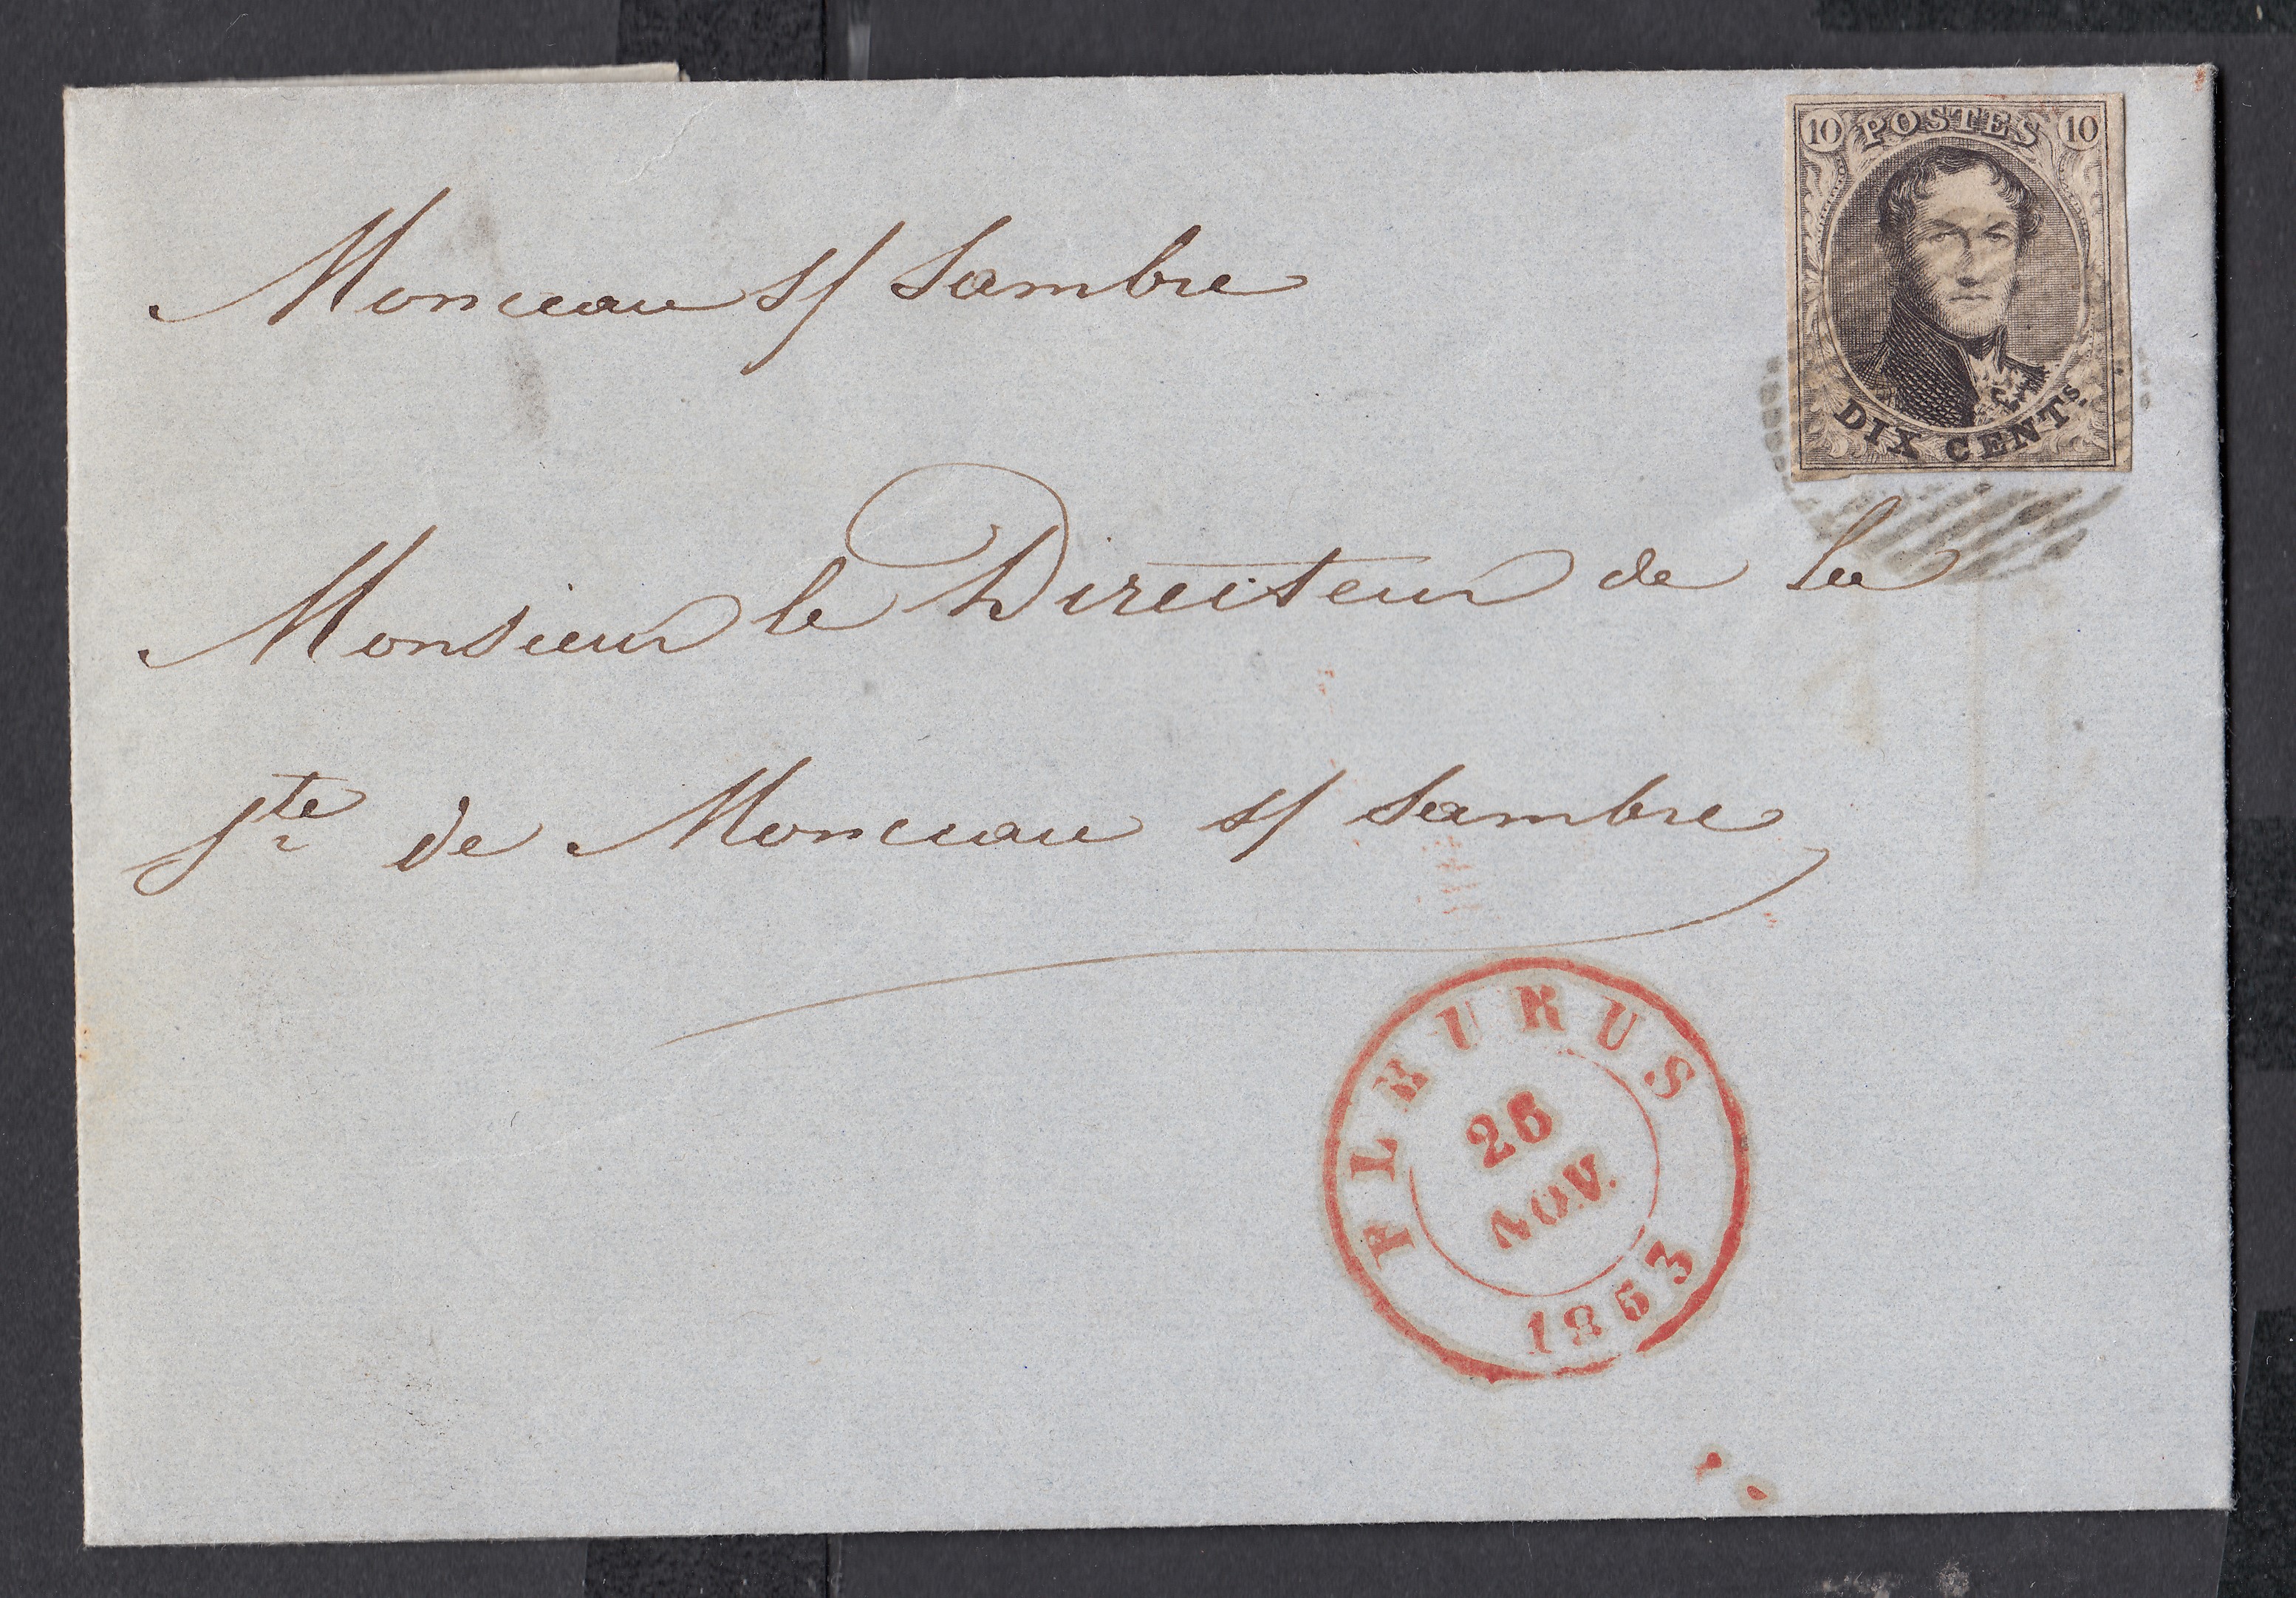 10 POSTES 10
DIX CENTS.
Monceau s/ Sambre
Monsieur le Directeur de la
Ste de Monceau s/ Sambre
FLEURUS
26
NOV.
1853